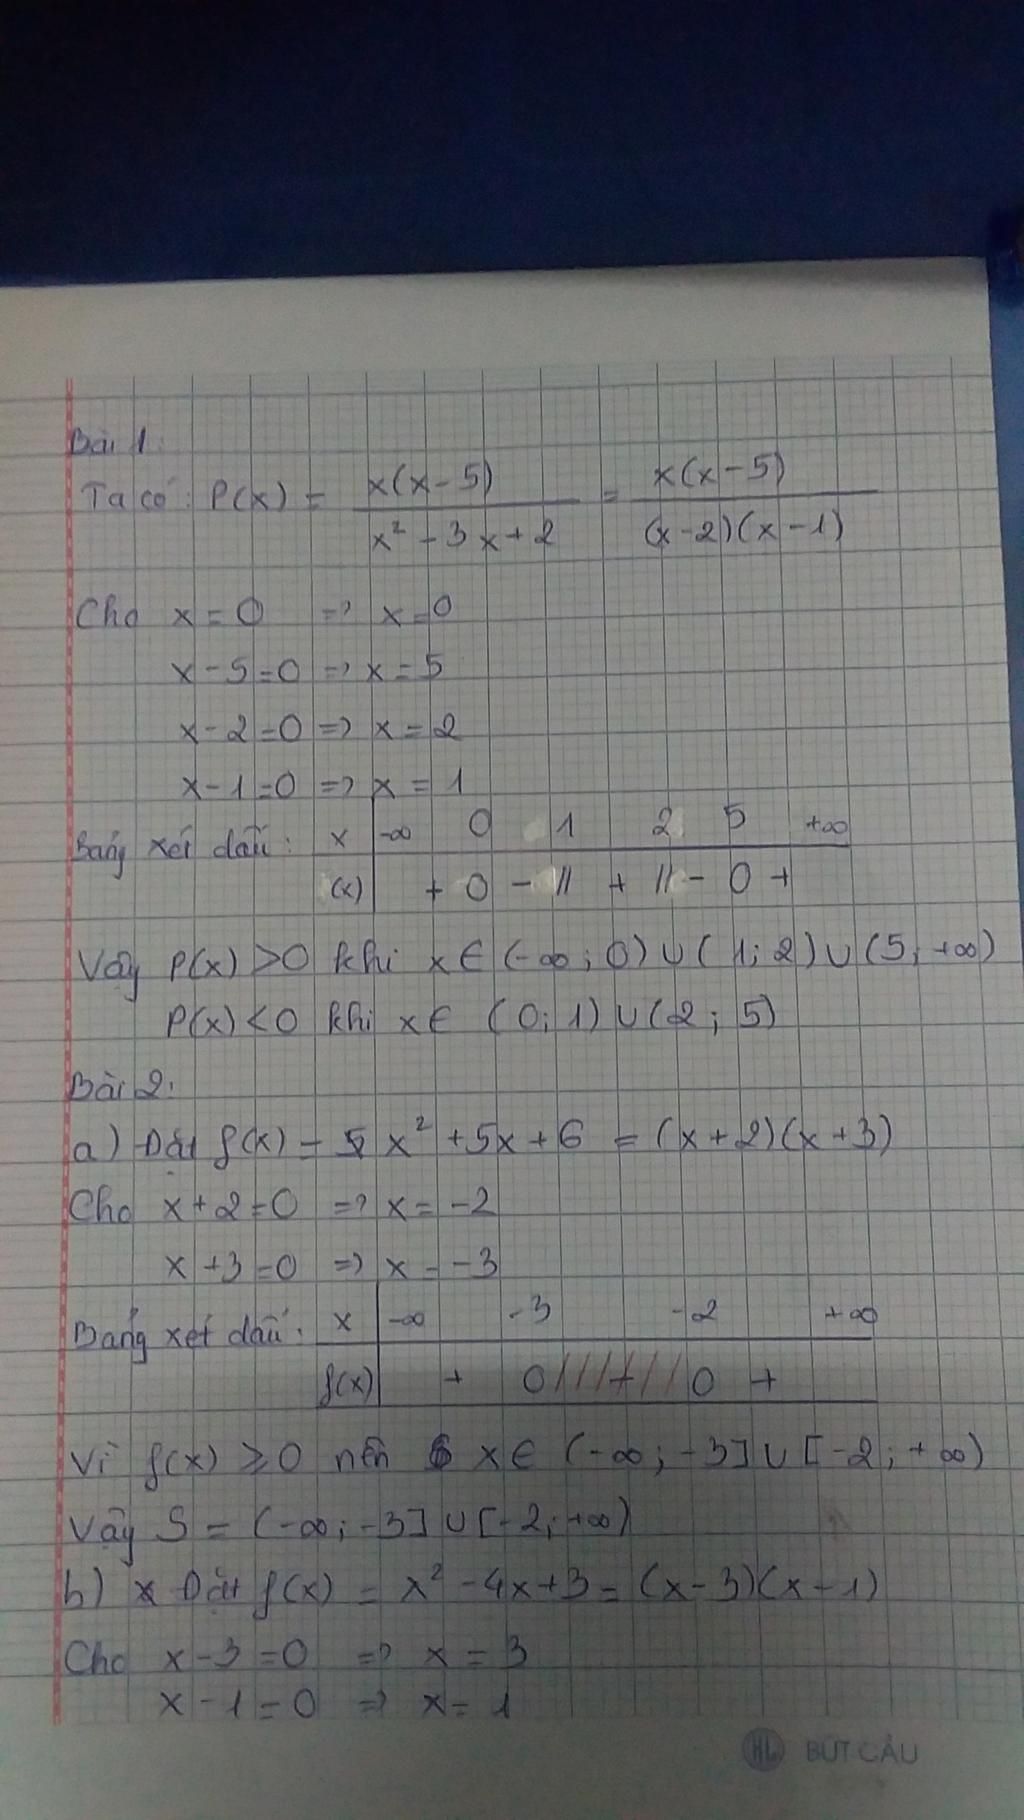 Bài 1:
Ta có: P(x) = x(x-5) / x² - 3x + 2 = x(x-5) / (x-2)(x-1)
Cho x = 0 => x = 0
x - 5 = 0 => x = 5
x - 2 = 0 => x = 2
x - 1 = 0 => x = 1
Bảng xét dấu: x | -∞ 0 1 2 5 +∞
(x) | + 0 - || + || - 0 +
Vậy P(x) > 0 khi x ∈ (-∞; 0) ∪ (1; 2) ∪ (5; +∞)
P(x) < 0 khi x ∈ (0; 1) ∪ (2; 5)
Bài 2:
a) Đặt f(x) = x² + 5x + 6 = (x+2)(x+3)
Cho x + 2 = 0 => x = -2
x + 3 = 0 => x = -3
Bảng xét dấu: x | -∞ -3 -2 +∞
f(x) | + 0 ///-/// 0 +
Vì f(x) ≥ 0 nên x ∈ (-∞; -3] ∪ [-2; +∞)
Vậy S = (-∞; -3] ∪ [-2; +∞)
b) Đặt f(x) = x² - 4x + 3 = (x-3)(x-1)
Cho x - 3 = 0 => x = 3
x - 1 = 0 => x = 1
HL BÚT CẢU